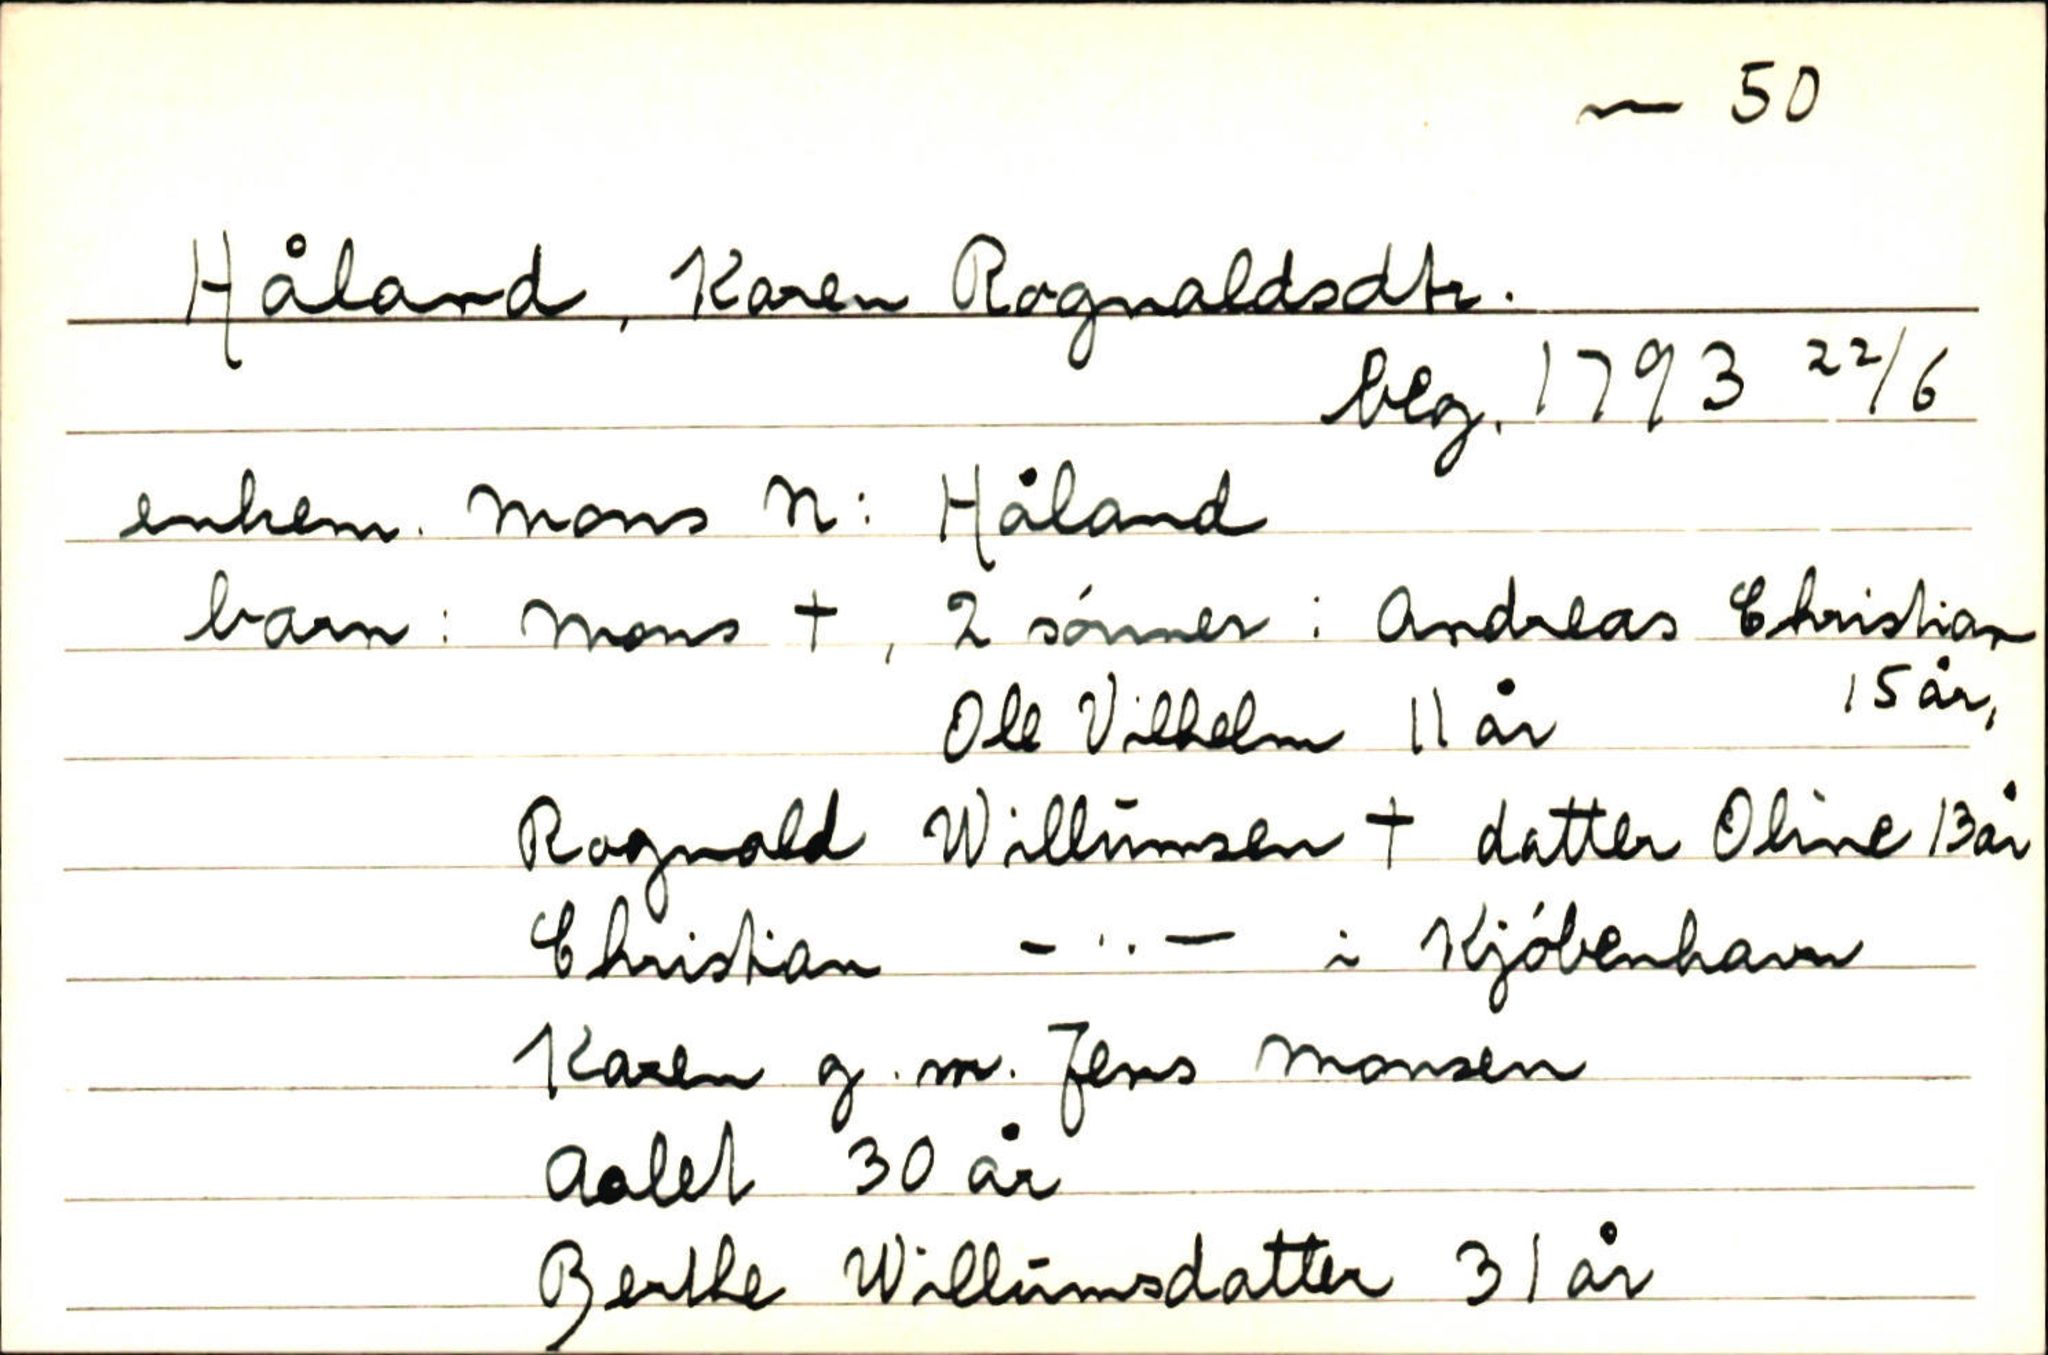 — 50
Håland, Karen Rognaldsdtr.
beg. 1793 22/6
enkem. Mons N: Håland
barn: Mons +, 2 sónner: Andreas Christian
15 år,
Ole Vilhelm 11 år
Rognald Willumsen + datter Oline 13 år
Christian - ·· — i Kjóbenhavn
Karen g. m. Jens Monsen
Aalet 30 år
Berthe Willumsdatter 31 år